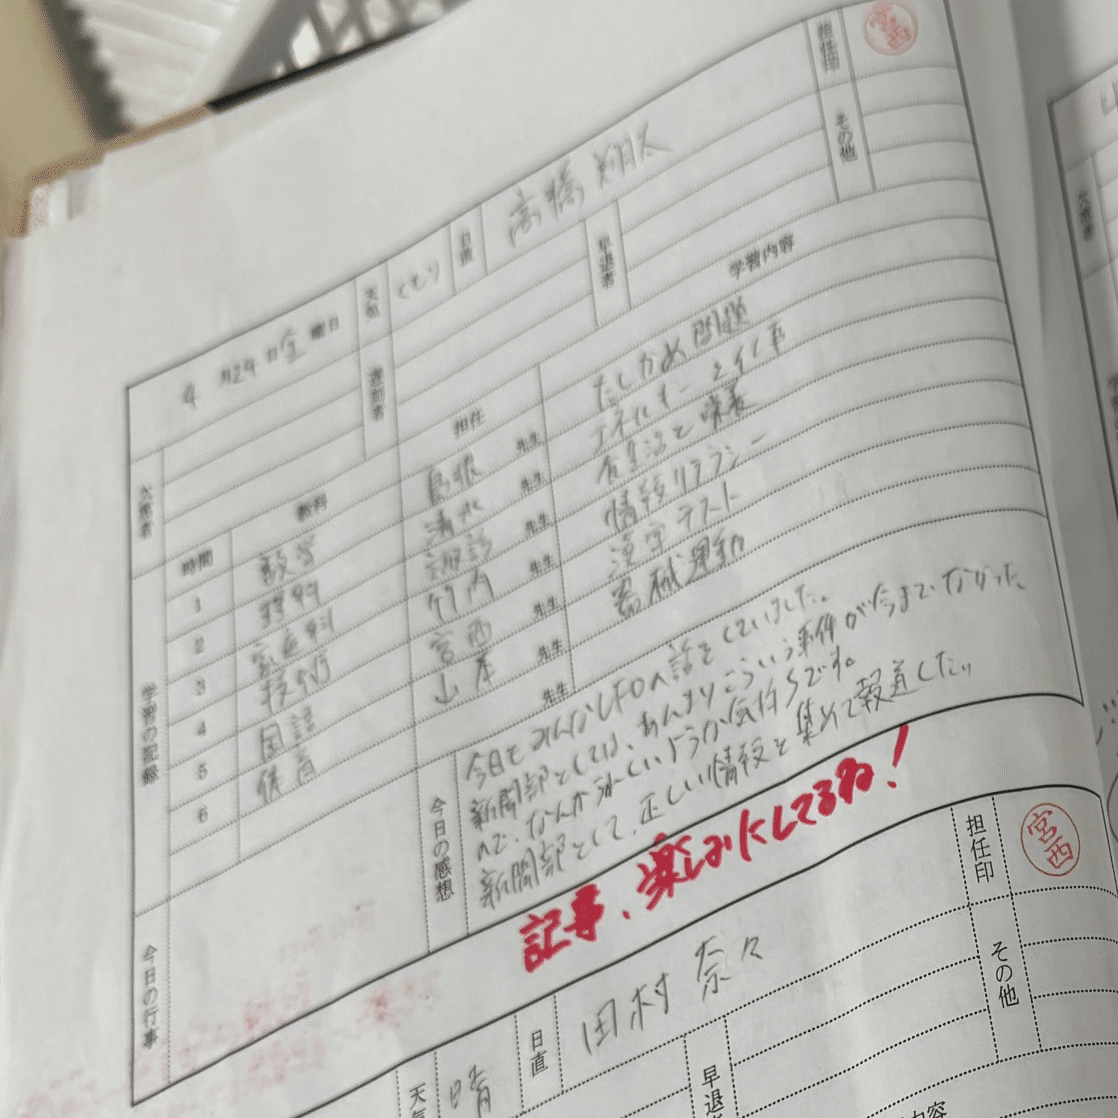 4月24日金曜日 天気 くもり 日直 高橋 翔太 担任印 宮西
欠席者 遅刻者 早退者 その他
時間 教科 担任 学習内容
1 数学 島根先生 たしかめ問題
2 理科 清水先生 エネルギーと仕事
3 家庭科 諏訪先生 食生活と栄養
4 技術 竹内先生 情報リテラシー
5 国語 宮西先生 漢字テスト
6 体育 山本先生 器械運動
先生
学習の記録
今日の行事
今日の感想
今日もみんなUFOの話をしていました。
新聞部としては、あんまりこういう事件が今までなかった
ので、なんか嬉しいような気持ちです。
新聞部として、正しい情報を集めて報道したい
記事、楽しみにしてるね!
天気 晴 日直 田村 奈々 担任印 宮西
早退 その他
内容